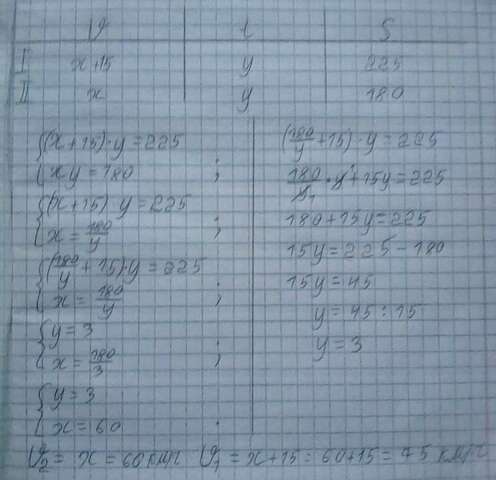 V t S
I x+15 y 225
II x y 180
{(x+15)·y=225
{xy=180 ;
{(x+15) y=225
{x=180/y ;
{(180/y+15)·y=225
{x=180/y ;
{y=3
{x=180/3 ;
{y=3
{x=60 .
(180/y+15)·y=225
180/y·y+15y=225
180+15y=225
15y=225-180
15y=45
y=45:15
y=3
V₂= x=60км/г V₁=x+15=60+15=75км/г